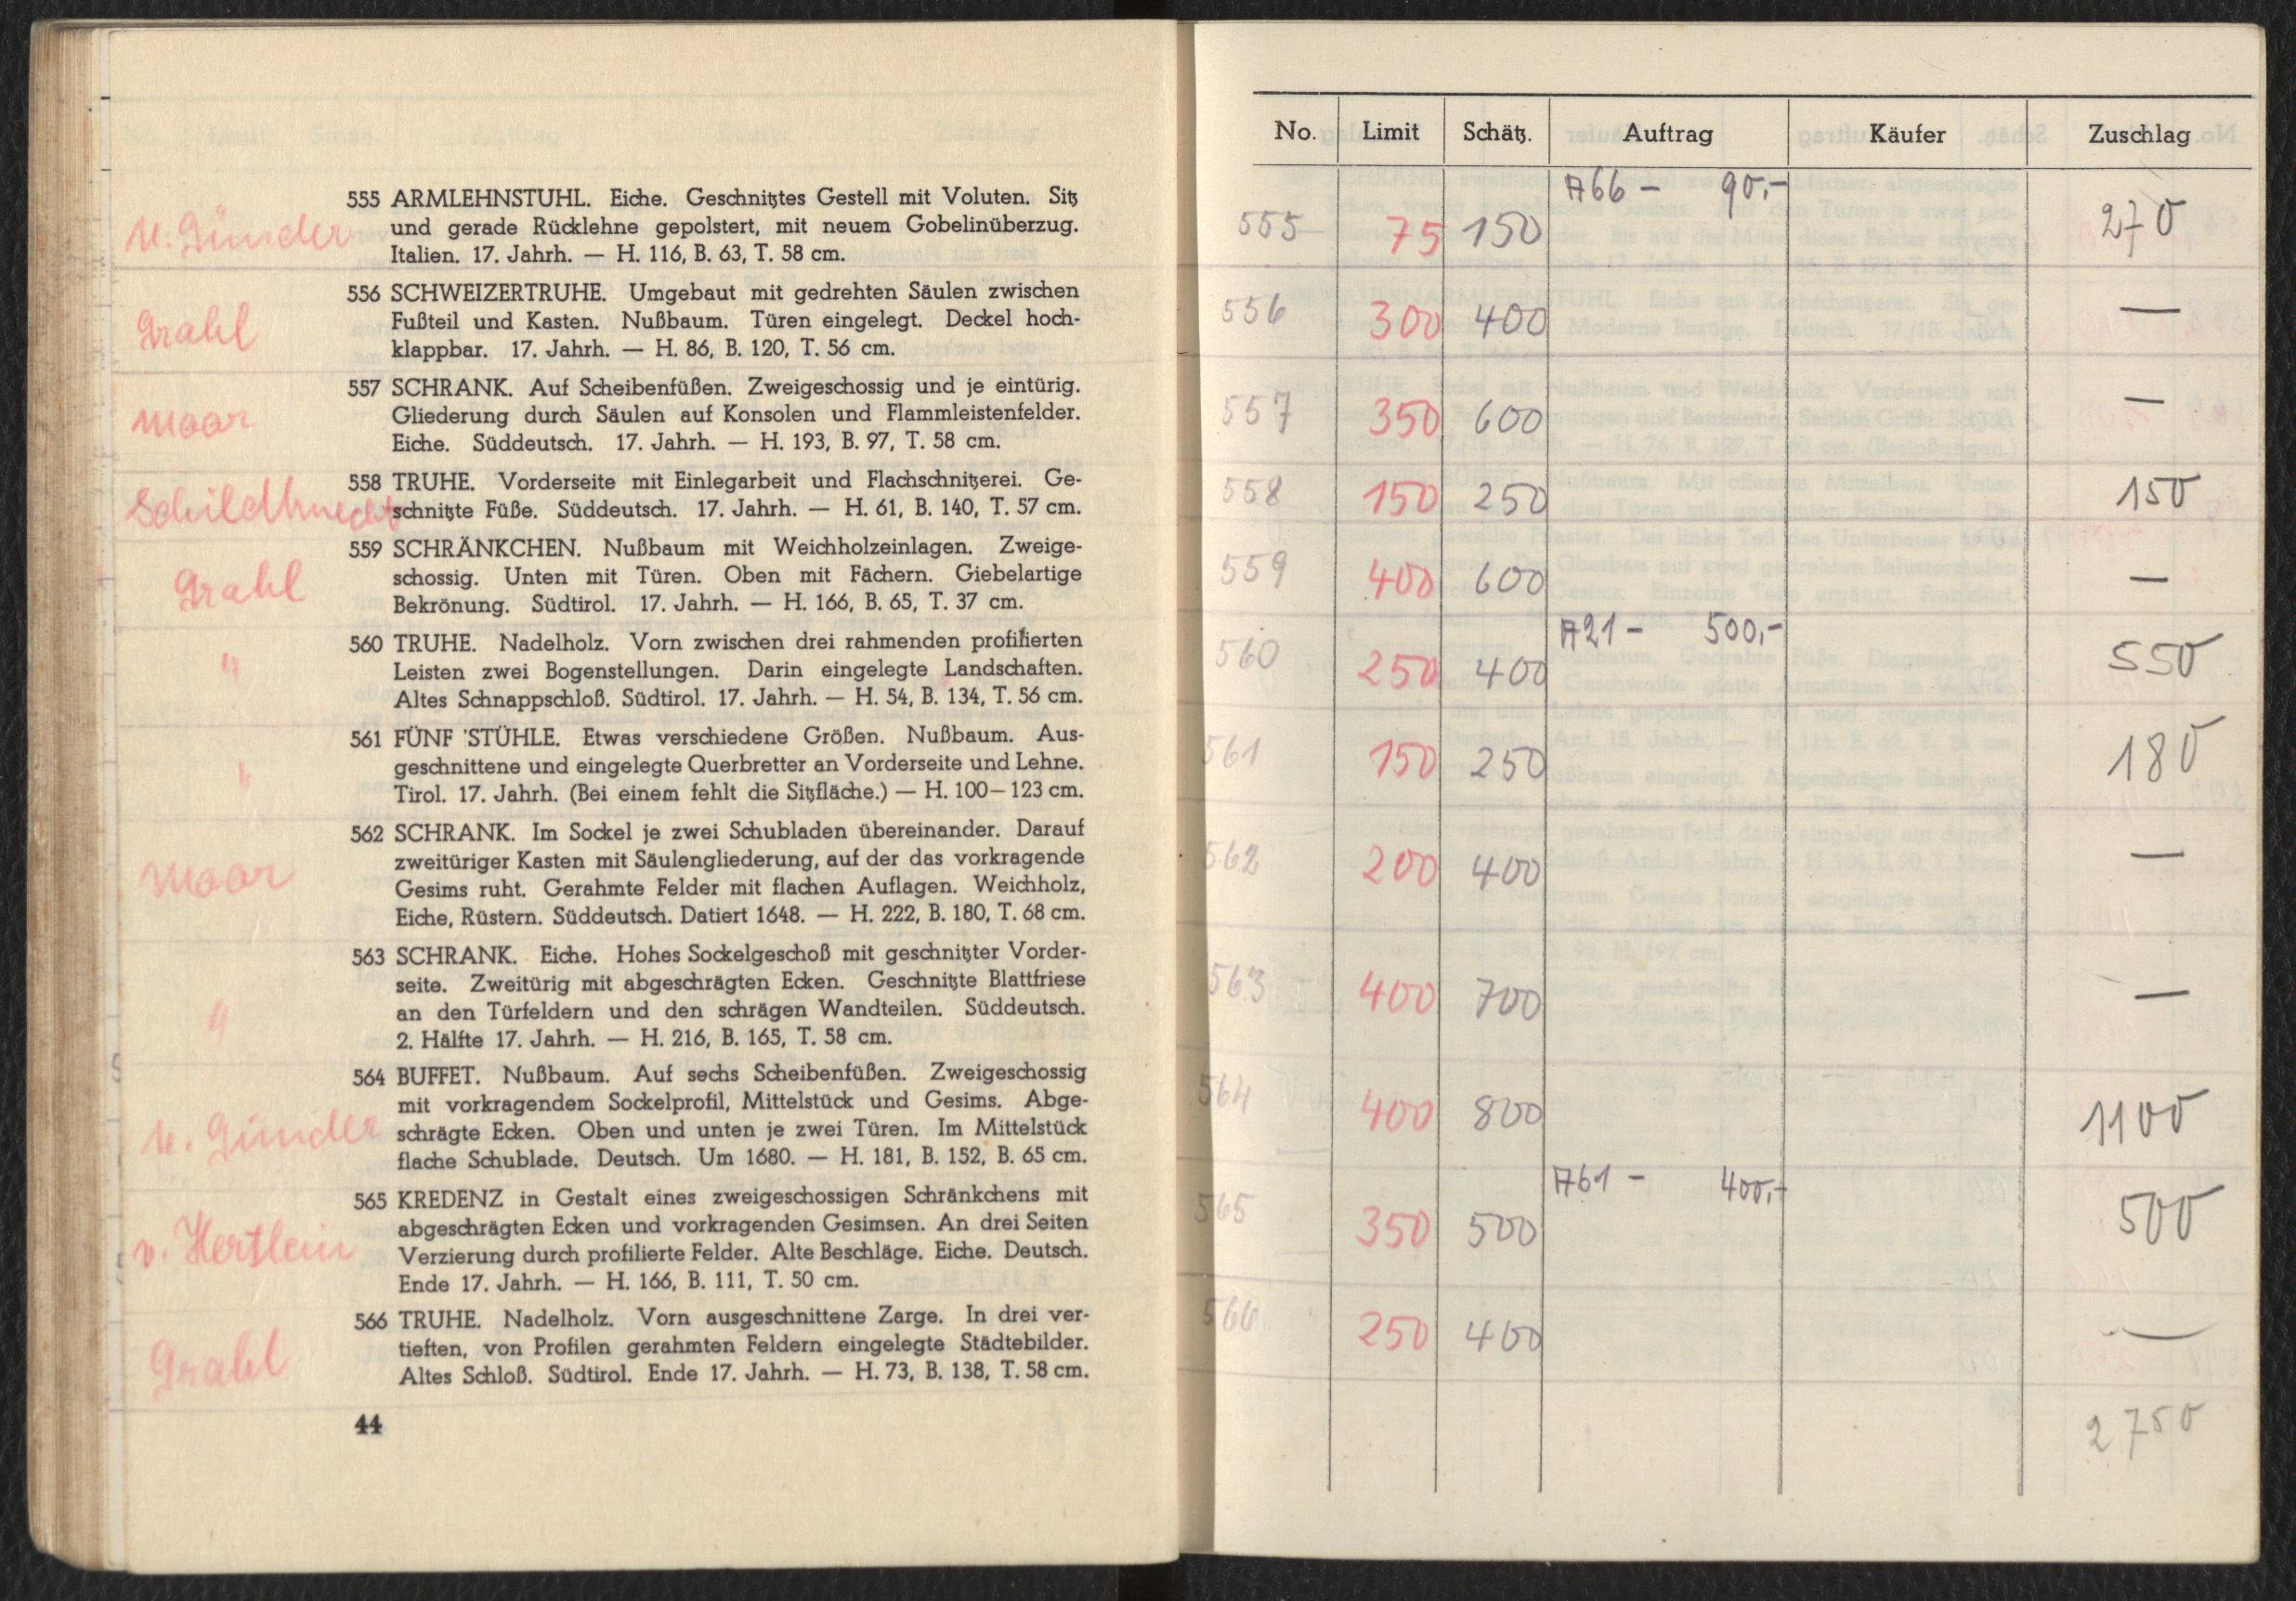 555 ARMLEHNSTUHL. Eiche. Geschnitztes Gestell mit Voluten. Sitz
und gerade Rücklehne gepolstert, mit neuem Gobelinüberzug.
Italien. 17. Jahrh. — H. 116, B. 63, T. 58 cm.
Grahl
556 SCHWEIZERTRUHE. Umgebaut mit gedrehten Säulen zwischen
Fußteil und Kasten. Nußbaum. Türen eingelegt. Deckel hoch-
klappbar. 17. Jahrh. — H. 86, B. 120, T. 56 cm.
Maar
557 SCHRANK. Auf Scheibenfüßen. Zweigeschossig und je eintürig.
Gliederung durch Säulen auf Konsolen und Flammleistenfelder.
Eiche. Süddeutsch. 17. Jahrh. — H. 193, B. 97, T. 58 cm.
Schildknecht
558 TRUHE. Vorderseite mit Einlegarbeit und Flachschnitzerei. Ge-
schnitzte Füße. Süddeutsch. 17. Jahrh. — H. 61, B. 140, T. 57 cm.
Grahl
559 SCHRÄNKCHEN. Nußbaum mit Weichholzeinlagen. Zweige-
schossig. Unten mit Türen. Oben mit Fächern. Giebelartige
Bekrönung. Südtirol. 17. Jahrh. — H. 166, B. 65, T. 37 cm.
"
560 TRUHE. Nadelholz. Vorn zwischen drei rahmenden profilierten
Leisten zwei Bogenstellungen. Darin eingelegte Landschaften.
Altes Schnappschloß. Südtirol. 17. Jahrh. — H. 54, B. 134, T. 56 cm.
"
561 FÜNF STÜHLE. Etwas verschiedene Größen. Nußbaum. Aus-
geschnittene und eingelegte Querbretter an Vorderseite und Lehne.
Tirol. 17. Jahrh. (Bei einem fehlt die Sitzfläche.) — H. 100–123 cm.
Maar
562 SCHRANK. Im Sockel je zwei Schubladen übereinander. Darauf
zweitüriger Kasten mit Säulengliederung, auf der das vorkragende
Gesims ruht. Gerahmte Felder mit flachen Auflagen. Weichholz,
Eiche, Rüstern. Süddeutsch. Datiert 1648. — H. 222, B. 180, T. 68 cm.
"
563 SCHRANK. Eiche. Hohes Sockelgeschoß mit geschnitzter Vorder-
seite. Zweitürig mit abgeschrägten Ecken. Geschnitzte Blattfriese
an den Türfeldern und den schrägen Wandteilen. Süddeutsch.
2. Hälfte 17. Jahrh. — H. 216, B. 165, T. 58 cm.
564 BUFFET. Nußbaum. Auf sechs Scheibenfüßen. Zweigeschossig
mit vorkragendem Sockelprofil, Mittelstück und Gesims. Abge-
schrägte Ecken. Oben und unten je zwei Türen. Im Mittelstück
flache Schublade. Deutsch. Um 1680. — H. 181, B. 152, B. 65 cm.
v. Hertlein
565 KREDENZ in Gestalt eines zweigeschossigen Schränkchens mit
abgeschrägten Ecken und vorkragenden Gesimsen. An drei Seiten
Verzierung durch profilierte Felder. Alte Beschläge. Eiche. Deutsch.
Ende 17. Jahrh. — H. 166, B. 111, T. 50 cm.
Grahl
566 TRUHE. Nadelholz. Vorn ausgeschnittene Zarge. In drei ver-
tieften, von Profilen gerahmten Feldern eingelegte Städtebilder.
Altes Schloß. Südtirol. Ende 17. Jahrh. — H. 73, B. 138, T. 58 cm.
44
No. Limit Schätz. Auftrag Käufer Zuschlag
A66 – 90,-
555 75 150 270
556 300 400 —
557 350 600 —
558 150 250 150
559 400 600 —
A21 – 500,-
560 250 400 550
561 150 250 180
562 200 400 —
563 400 700 —
564 400 800 1100
A61 – 400,-
565 350 500 500
566 250 400 —
2750